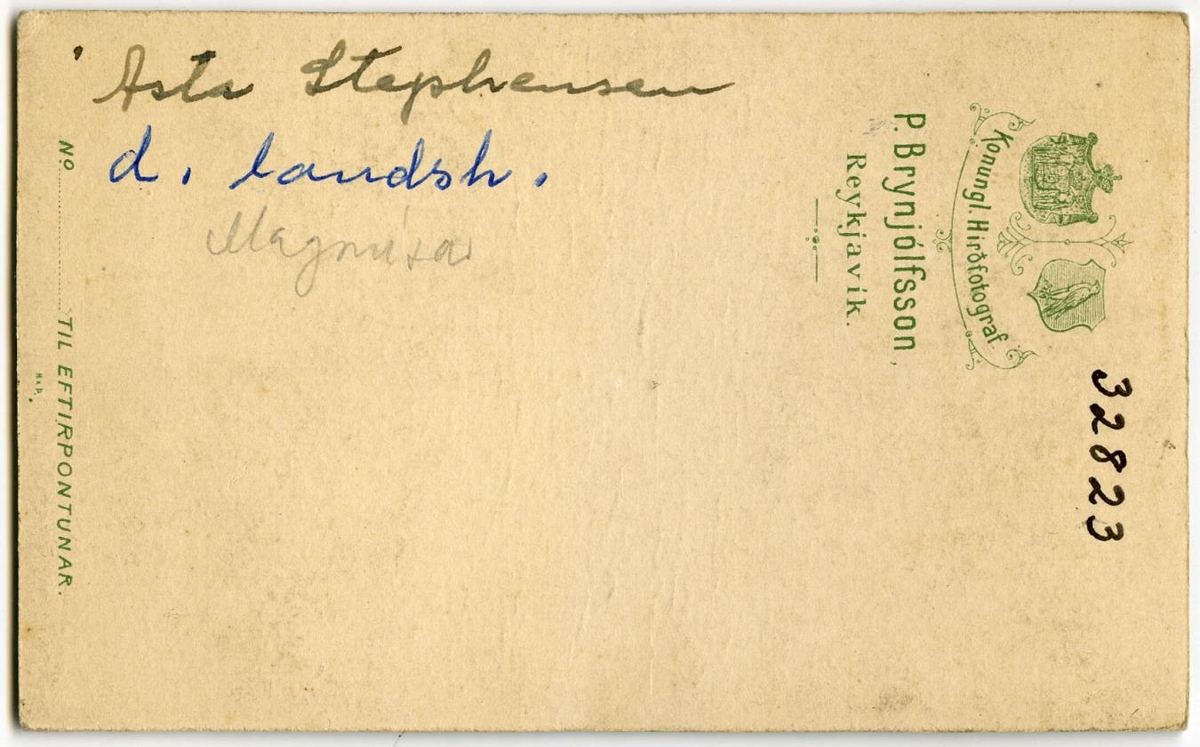 Ásta Stephensen
d. landsh.
Magnúsar
Konungl. Hirðfotograf.
P. Brynjólfsson,
Reykjavik.
32823
No TIL EFTIRPONTUNAR.